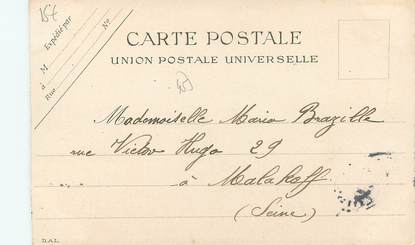 15€
Expédié par
M
à
Rue
No
CARTE POSTALE
UNION POSTALE UNIVERSELLE
Mademoiselle Maria Brazille
rue Victor Hugo 29
à Malakoff
(Seine)
D.A.L.